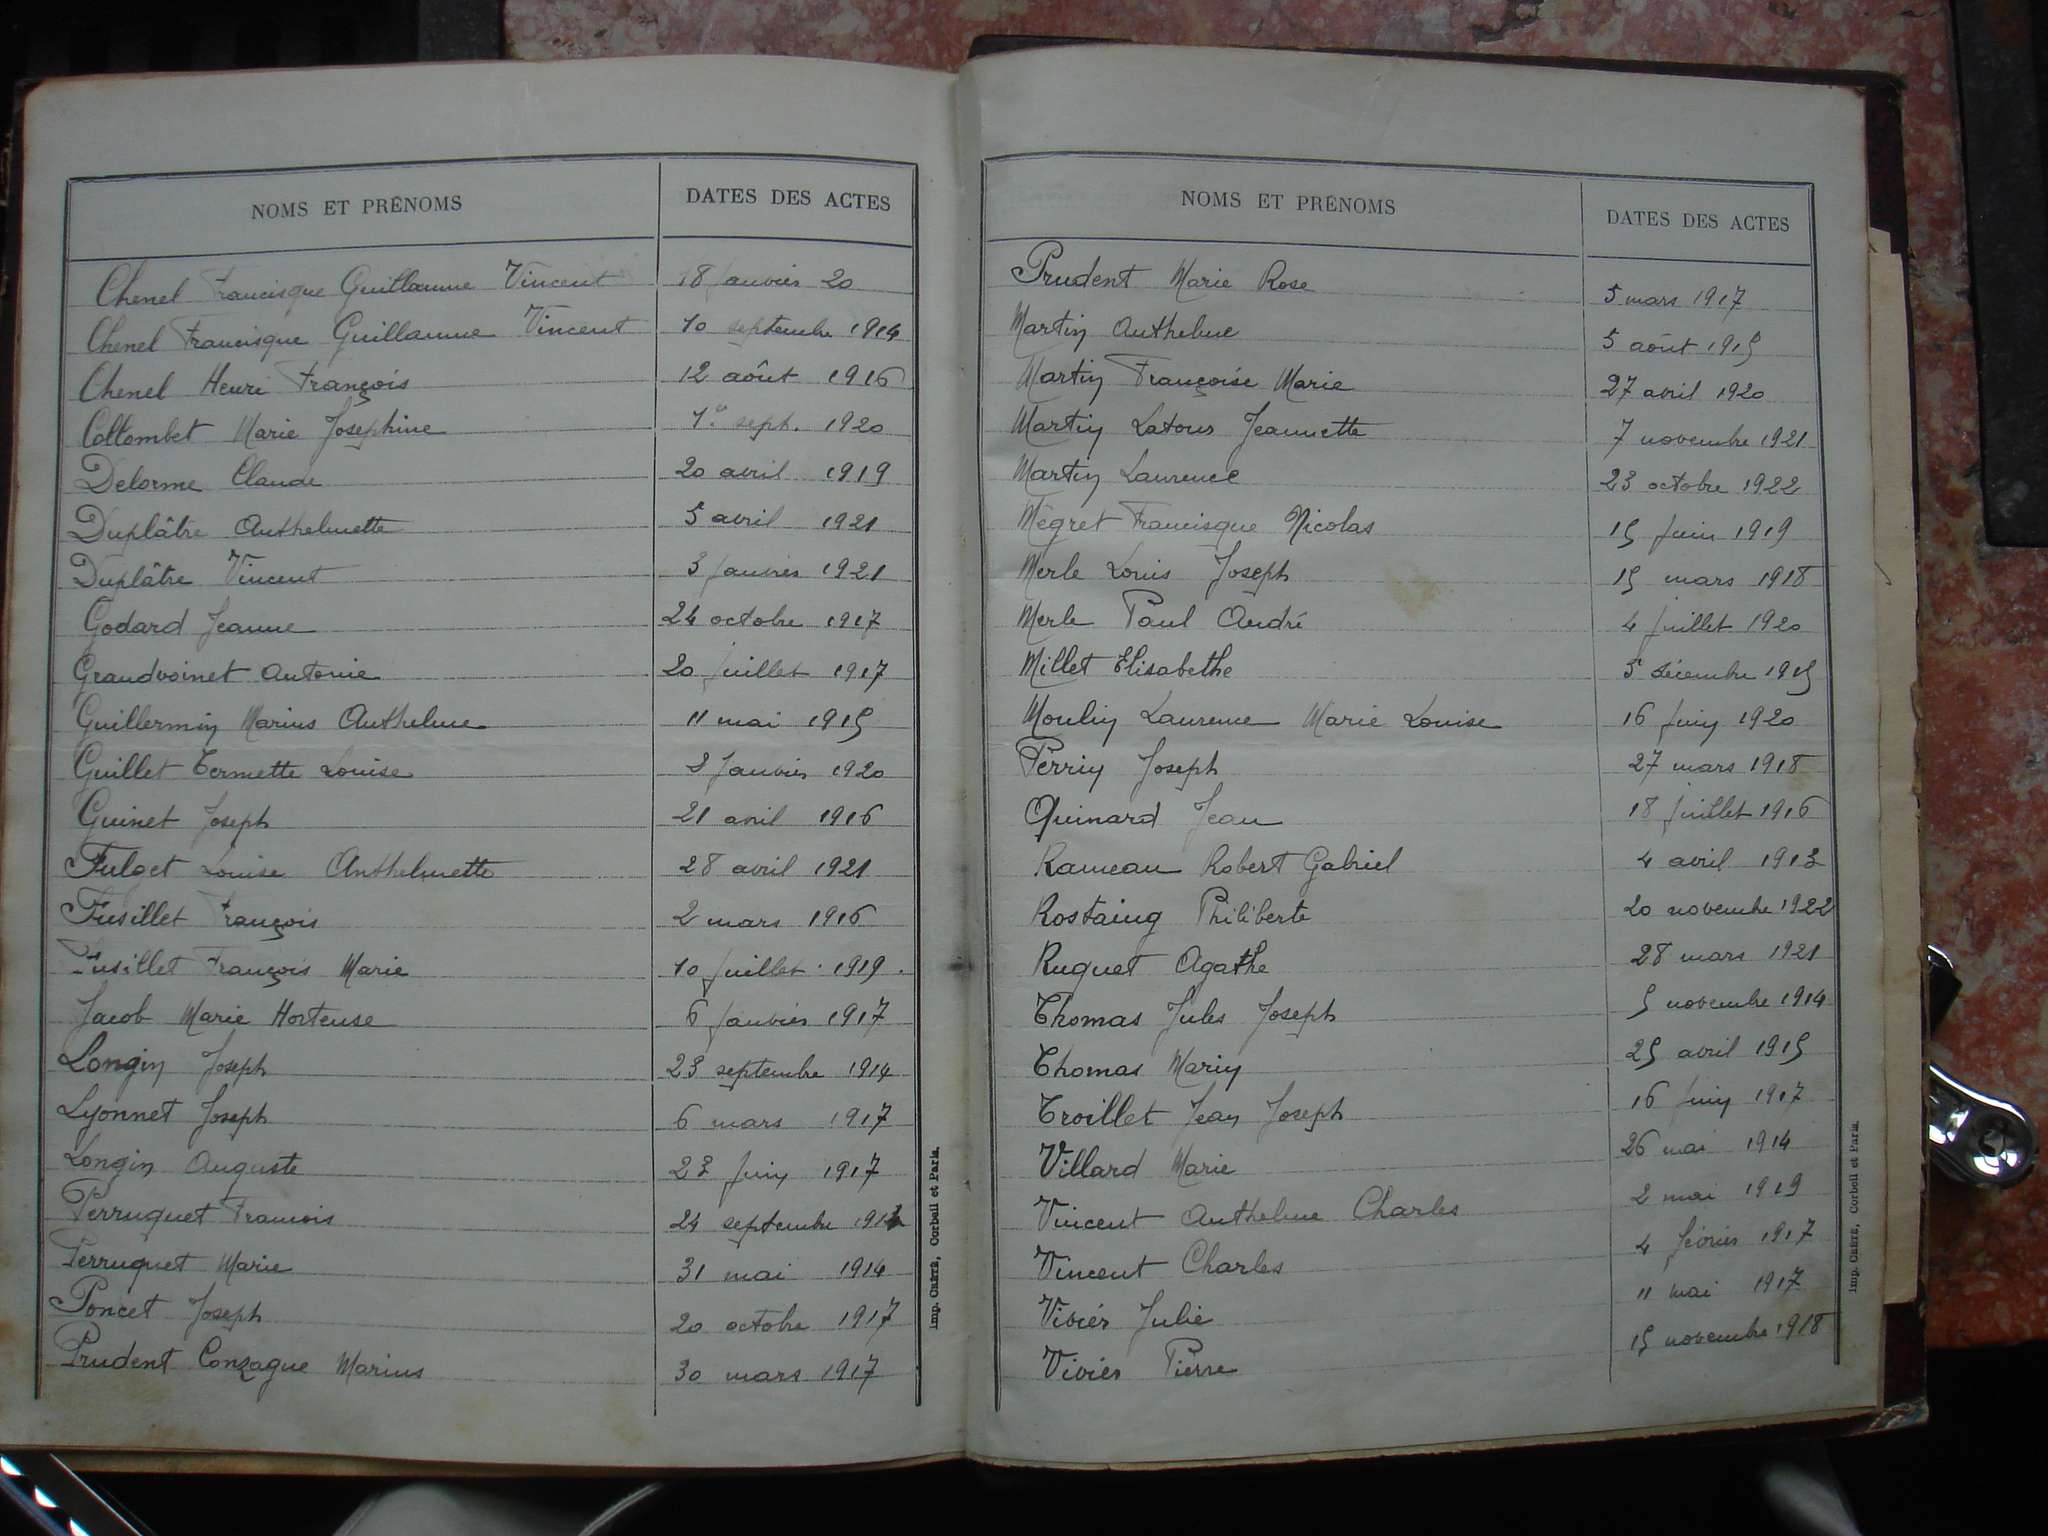 NOMS ET PRÉNOMS DATES DES ACTES
Chenel Francisque Guillaume Vincent 18 janvier 20
Chenel Francisque Guillaume Vincent 10 septembre 1914
Chenel Henri François 12 août 1916
Collombet Marie Joséphine 1er sept. 1920
Delorme Claude 20 avril 1919
Duplâtre Anthelmette 5 avril 1921
Duplâtre Vincent 3 janvier 1921
Godard Jeanne 24 octobre 1917
Grandvoinet Antonie 20 juillet 1917
Guillermin Marius Anthelme 11 mai 1915
Guillet Termette Louise janvier 1920
Guinet Joseph 21 avril 1916
Fuloet Louise Anthelmette 28 avril 1921
Fusillet François 2 mars 1916
Fusillet François Marie 10 juillet 1919.
Jacob Marie Hortense 6 janvier 1917
Longin Joseph 23 septembre 1914
Lyonnet Joseph 6 mars 1917
Longin Auguste 23 juin 1917
Perruquet Francois 24 septembre
Perruquet Marie 31 mai 1914
Poncet Joseph 20 octobre 1917
Prudent Conzague Marius 30 mars 1917
Imp. CRÉTÉ, Corbeil et Paris.
NOMS ET PRÉNOMS DATES DES ACTES
Prudent Marie Rose 5 mars 1917
Martin Anthelme 5 août 1915
Martin Françoise Marie 27 avril 1920
Martin Latour Jeannette 7 novembre 1921
Martin Laurence 23 octobre 1922
Mégret Francisque Nicolas 15 juin 1919
Merle Louis Joseph 15 mars 1918
Merle Paul André 4 juillet 1920
Millet Elisabethe 5 décembre 1915
Moulin Laurence Marie Louise 16 juin 1920
Perrin Joseph 27 mars 1918
Quinard Jean 18 juillet 1916
Rameau Robert Gabriel 4 avril 1913
Rostaing Philiberte 20 novembre 1922
Ruquet Agathe 28 mars 1921
Thomas Jules Joseph 5 novembre 1914
Thomas Marin 25 avril 1915
Troillet Jean Joseph 16 juin 1917
Villard Marie 26 mai 1914
Vincent Anthelme Charles 2 mai 1919
Vincent Charles 4 février 1917
Vivier Julie 11 mai 1917
Vivier Pierre 15 novembre 1918
Imp. CRÉTÉ, Corbeil et Paris.